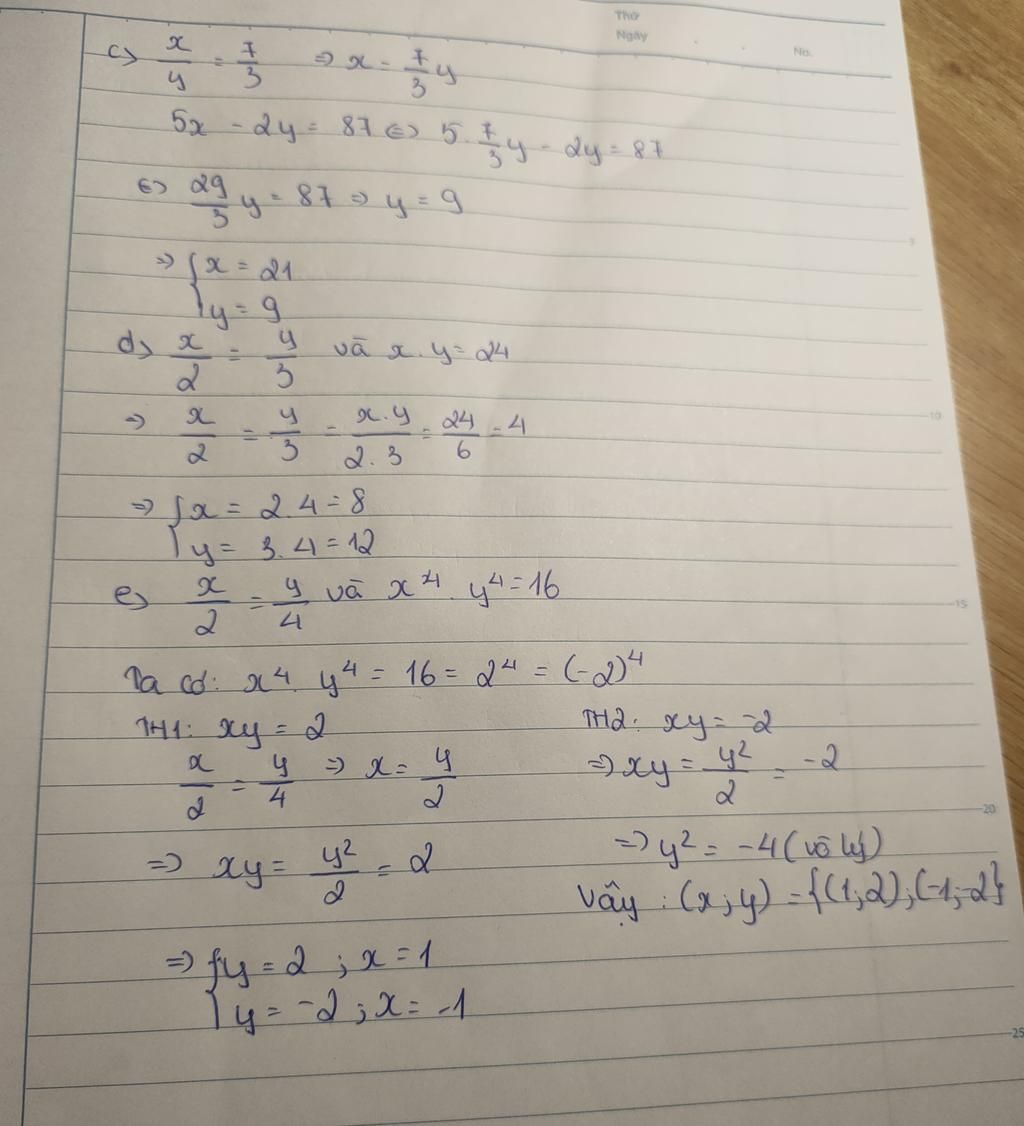 Thứ
Ngày
No.
c) x/y = 7/3 ⇒ x = 7/3 y
5x - 2y = 87 ⇔ 5. 7/3 y - 2y = 87
⇔ 29/3 y = 87 ⇒ y = 9
5
⇒ { x = 21
y = 9
d) x/2 = y/3 và x.y = 24
10
⇒ x/2 = y/3 = x.y/2.3 = 24/6 = 4
⇒ { x = 2.4 = 8
y = 3.4 = 12
e) x/2 = y/4 và x⁴. y⁴ = 16
15
Ta có: x⁴. y⁴ = 16 = 2⁴ = (-2)⁴
TH1: xy = 2
x/2 = y/4 ⇒ x = y/2
⇒ xy = y²/2 = 2
⇒ { y = 2 ; x = 1
y = -2 ; x = -1
TH2: xy = -2
⇒ xy = y²/2 = -2
20
⇒ y² = -4 (vô lý)
Vậy : (x;y) = {(1;2);(-1;-2}
25